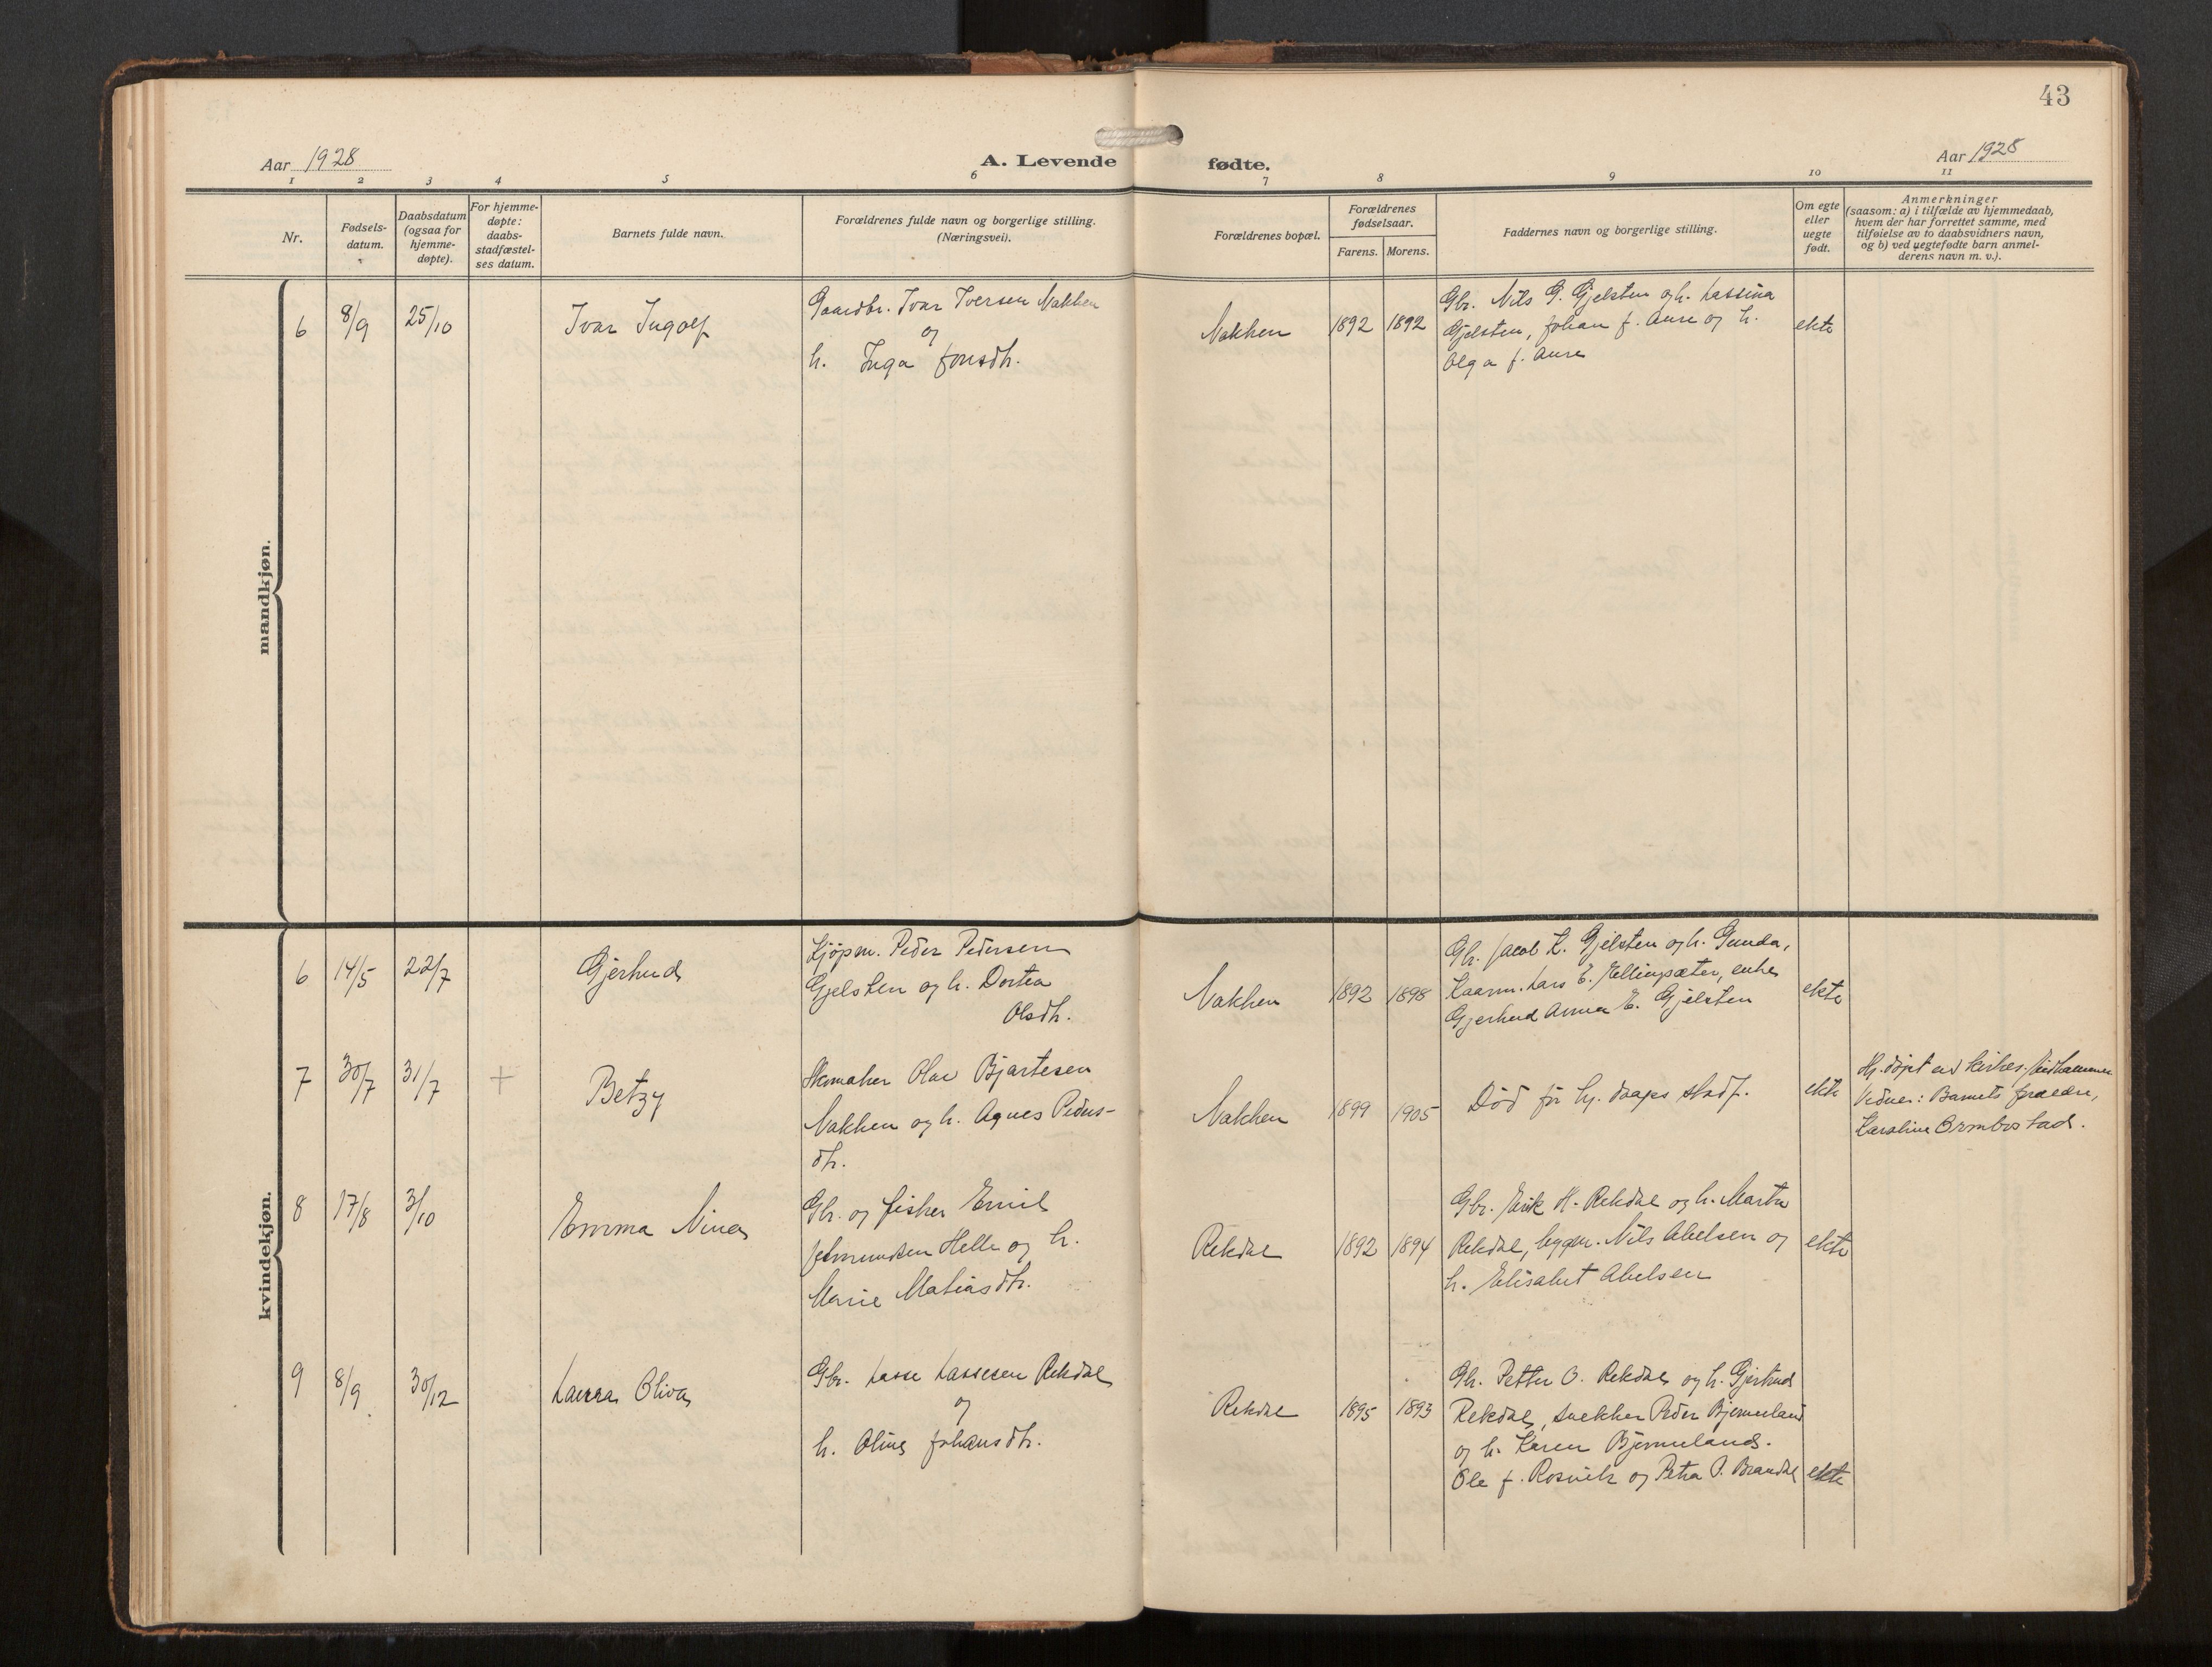 43
Aar 1928
A. Levende fødte.
Aar 1928
1 2 3 4 5 6 7 8 9 10 11
Nr.
Fødsels-
datum.
Daabsdatum
(ogsaa for
hjemme-
døpte).
For hjemme-
døpte:
daabs-
stadfæstel-
ses datum.
Barnets fulde navn.
Forældrenes fulde navn og borgerlige stilling.
(Næringsvei).
Forældrenes bopæl.
Forældrenes
fødselsaar.
Farens. Morens.
Faddernes navn og borgerlige stilling.
Om egte
eller
uegte
født.
Anmerkninger
(saasom: a) i tilfælde av hjemmedaab,
hvem der har forrettet samme, med
tilføielse av to daabsvidners navn,
og b) ved uegtefødte barn anmel-
derens navn m. v.).
mandkjøn.
6 8/9 25/10
Ivar Ingolf
Gaardbr. Ivar Iversen Nakken
og
h. Inga Jonsdtr.
Nakken 1892 1892
Gbr. Nils G. Gjelsten og h. Lassina
Gjelsten, Johan J. Aure og h.
Olga J. Aure
ekte
kvindekjøn.
6 14/5 22/7
Gjertrud
Kjøpm. Peder Pedersen
Gjelsten og h. Dortea
Olsdtr.
Nakken 1892 1898
Gbr. Jacob K. Gjelsten og h. Gunda,
Lars E. Ellingsæter, enke
Gjertrud Anna E. Gjelsten
ekte
7 30/7 31/7 +
Betzy
Olav Bjartesen
Nakken og h. Agnes Peders-
dtr.
Nakken 1899 1905
Død før hj. daaps stadf.
ekte
Hj. døpt av kirkes.
Vidner: Barnets forældre,
Karoline Ormbostad.
8 17/8 3/10
Emma Nina
Gbr. og fisker Emil
Helle og h.
Marie Matiasdtr.
Rekdal 1892 1894
Gbr. Erik H. Rekdal og h. Marta
Rekdal, bygm. Nils Abelsen og
h. Elisabet Abelsen
ekte
9 8/9 30/12
Laura Oliva
Gbr. Lasse Lassesen Rekdal
og
h. Oline Johansdtr.
Rekdal 1895 1893
Gbr. Petter O. Rekdal og h. Gjertrud
Rekdal, snekker Peder Bjermeland
og h. Karen Bjermeland.
Ole J. Rosvik og Petra P. Brandal
ekte